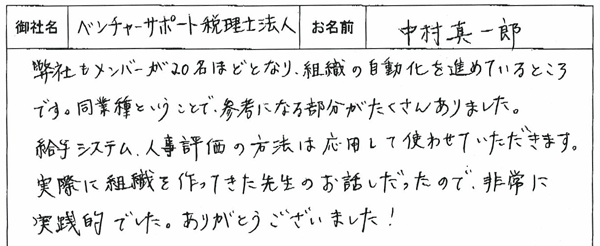 御社名 ベンチャーサポート税理士法人 お名前 中村真一郎
弊社もメンバーが20名ほどとなり、組織の自動化を進めているところ
です。同業種ということで、参考になる部分がたくさんありました。
給与システム、人事評価の方法は応用して使わせていただきます。
実際に組織を作ってきた先生のお話しだったので、非常に
実践的でした。ありがとうございました!